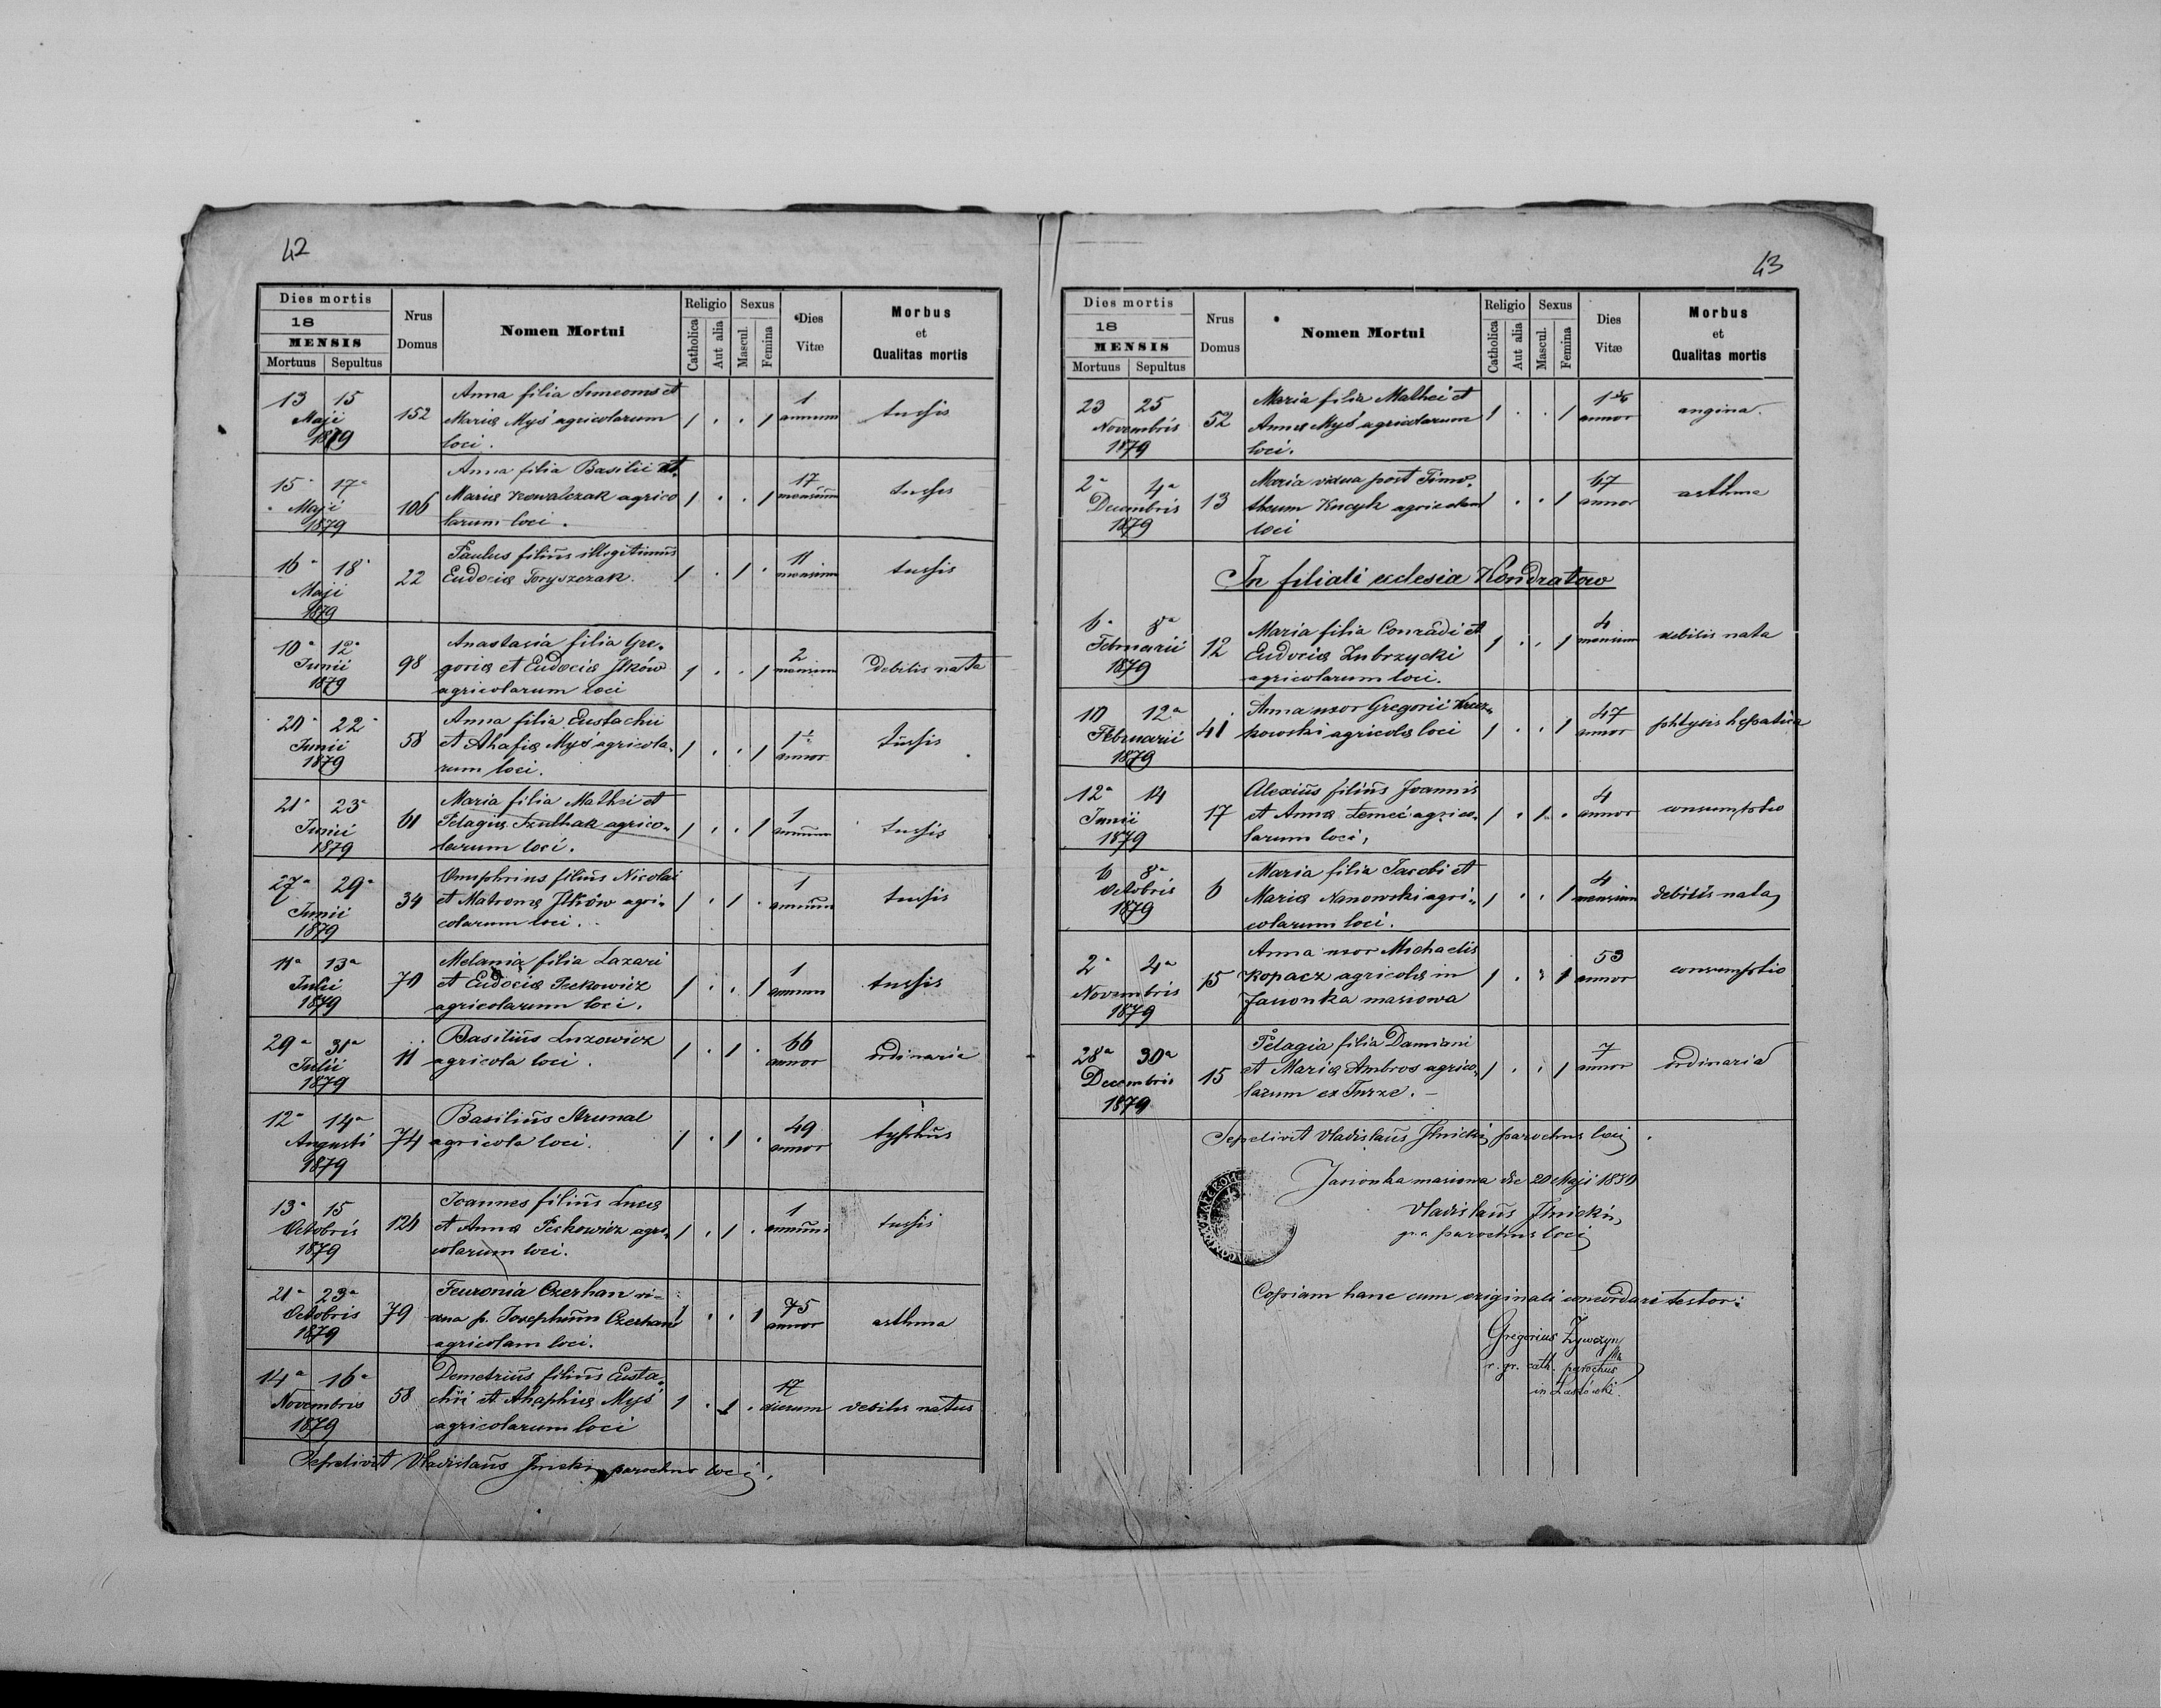 42
Dies mortis
18
MENSIS
Mortuus Sepultus
Nrus Domus
Nomen Mortui
Religio
Catholica Aut alia
Sexus
Mascul. Femina
Dies Vitæ
Morbus et Qualitas mortis
13 15 Maji 1879 152 Anna filia Simeonis et 1 . . 1 1 annum tussis
Mariæ Myś agricolarum
loci.
15 17 Maji 1879 106 Anna filia Basilii et 1 . . 1 17 mensium tussis
Mariæ Kowalczak agrico
larum loci.
16 18 Maji 1879 22 Paulus filius illegitimus 1 . 1 . 11 mensium tussis
Eudociæ Toryszczak.
10 12 Junii 1879 98 Anastasia filia Gre- 1 . . 1 2 mensium debilis nata
goriæ et Eudociæ Ilków
agricolarum loci
20 22 Junii 1879 58 Anna filia Eustachii 1 . . 1 annor tussis
et Ahafiæ Myś agricola-
rum loci.
21 23 Junii 1879 61 Maria filia Mathei et 1 . . 1 1 annum tussis
Pelagiæ agrico-
larum loci.
27 29 Junii 1879 34 Onuphrius filius Nicolai 1 . 1 . 1 annum tussis
et Matronæ Ilków agri-
colarum loci.
11 13 Julii 1879 70 Melania filia Lazari 1 . . 1 1 annum tussis
et Eudociæ Peckowicz
agricolarum loci.
29 31 Julii 1879 11 Basilius Luzowicz 1 . 1 . 66 annor ordinaria
agricola loci.
12 14 Augusti 1879 74 Basilius Strunal 1 . 1 . 49 annor typhus
agricola loci.
13 15 Octobris 1879 124 Joannes filius Lucæ 1 . 1 . 1 annum tussis
et Annæ Peckowicz agri-
colarum loci.
21 23 Octobris 1879 79 Feuronia Czerhan vi- 1 . . 1 75 annor asthma
dua p. Josephum Czerhan
agricolam loci.
14 16 Novembris 1879 58 Demetrius filius Eusta- 1 . 1 . 17 dierum debilis natus
chii et Ahaphiæ Myś
agricolarum loci
Sepelivit Vladislaus Ilnicki parochus loci.
43
Dies mortis
18
MENSIS
Mortuus Sepultus
Nrus Domus
Nomen Mortui
Religio
Catholica Aut alia
Sexus
Mascul. Femina
Dies Vitæ
Morbus et Qualitas mortis
23 25 Novembris 1879 52 Maria filia Mathei et 1 . . 1 annor angina.
Annæ Myś agricolarum
loci.
2 4 Decembris 1879 13 Maria vidua post Timo- 1 . . 1 67 annor asthma
theum Kucyk agricolam
loci
In filiali ecclesia Kondratow
6 8 Februarii 1879 12 Maria filia Conradi et 1 . . 1 4 mensium debilis nata
Eudociæ Zubrzycki
agricolarum loci.
10 12 Februarii 1879 41 Anna uxor Gregorii 1 . . 1 47 annor phtysis hepatica
kowski agricolæ loci
12 14 Junii 1879 17 Alexius filius Joannis 1 . 1 . 4 annor consumptio
et Annæ Lemeć agrico-
larum loci.
6 8 Octobris 1879 6 Maria filia Jacobi et 1 . . 1 4 mensium debilis nata
Mariæ Nanowski agri-
colarum loci.
2 4 Novembris 1879 15 Anna uxor Michaelis 1 . . 1 53 annor consumptio
Kopacz agricolæ in
Jasionka masiowa
28 30 Decembris 1879 15 Pelagia filia Damiani 1 . . 1 7 annor ordinaria
et Mariæ Ambros agrico-
larum ex Turze.
Sepelivit Vladislaus Ilnicki parochus loci.
Jasionka masiowa die 20 Maji 1880
Vladislaus Ilnicki
parochus loci
Copiam hanc cum originali concordare testor:
Gregorius Żywczyn
r. gr. cath. parochus
in